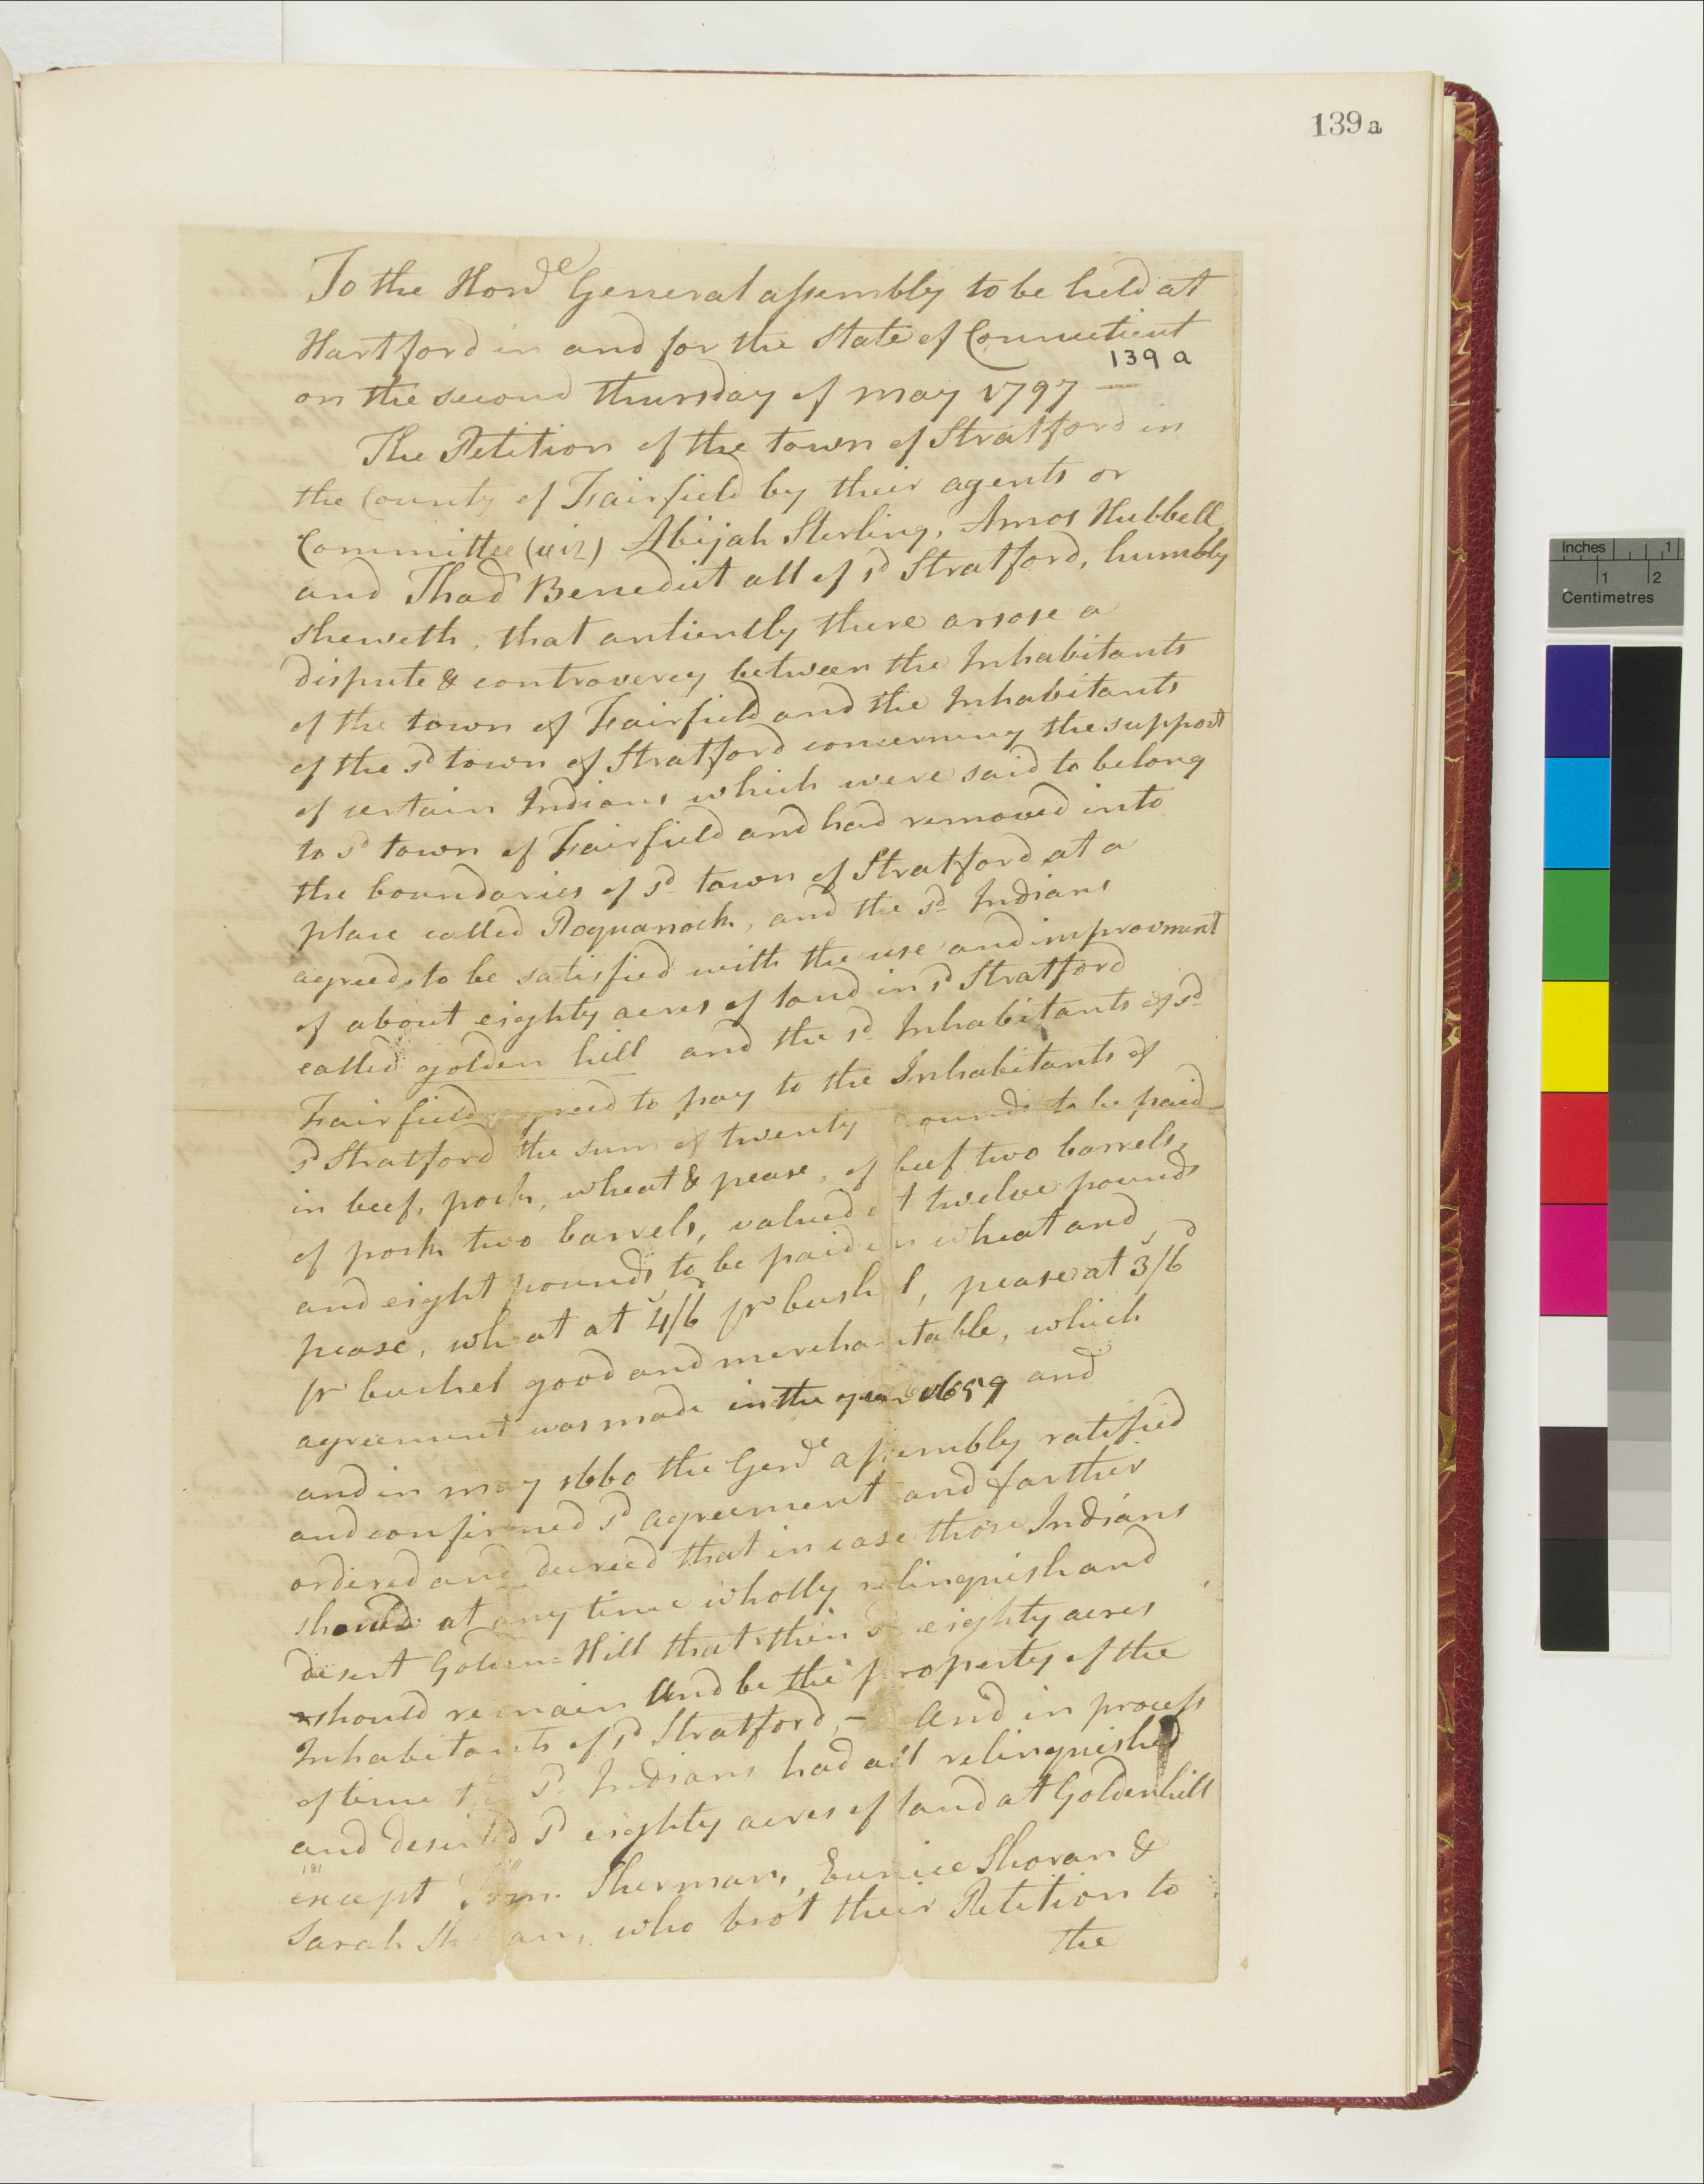 139a
To the Hond.e General assembly to be held at
Hartford in and for the state of Connecticut
139 a
on the second thursday of may 1797 —
The Petition of the town of Stratford in
the County of Fairfield by their agents or
Committee (viz) Abijah Sterling, Amos Hubbell,
and Thad Benedict all of sd Stratford, humbly
sheweth, that antiently there arose a
dispute & controvercy between the Inhabitants
of the town of Fairfield and the Inhabitants
of the sd town of Stratford concerning the support
of certain Indians which were said to belong
to sd town of Fairfield and had removed into
the boundaries of sd town of Stratford at a
place called Poquanock, and the sd Indians
agreed to be satisfied with the use and improvment
of about eighty acres of land in sd Stratford
called golden hill and the sd Inhabitants of sd
Fairfield agreed to pay to the Inhabitants of
sd Stratford the sum of twenty pounds to be paid
in beef, pork, wheat & pease, of beef two barrels,
of pork two barrels, valued at twelve pounds
and eight pounds to be paid in wheat and
pease, wheat at 4/6 pr bushel, pease at 3/6
pr bushel good and merchantable, which
agreement was made in the year 1659 and
and in may 1660 the Gend assembly ratified
and confirmed sd agreement and farther
ordered and decreed that in case those Indians
should at any time wholly relinquish and
desert Golden-Hill that then sd eighty acres
should remain and be the property of the
Inhabitants of sd Stratford, — and in process
of time the sd Indians had all relinquished
and deserted sd eighty acres of land at Goldenhill
181
except Tom Sherman, Eunice Shoran &
Sarah Shoran, who brot their Petition to
the
Inches 1
1 2
Centimetres